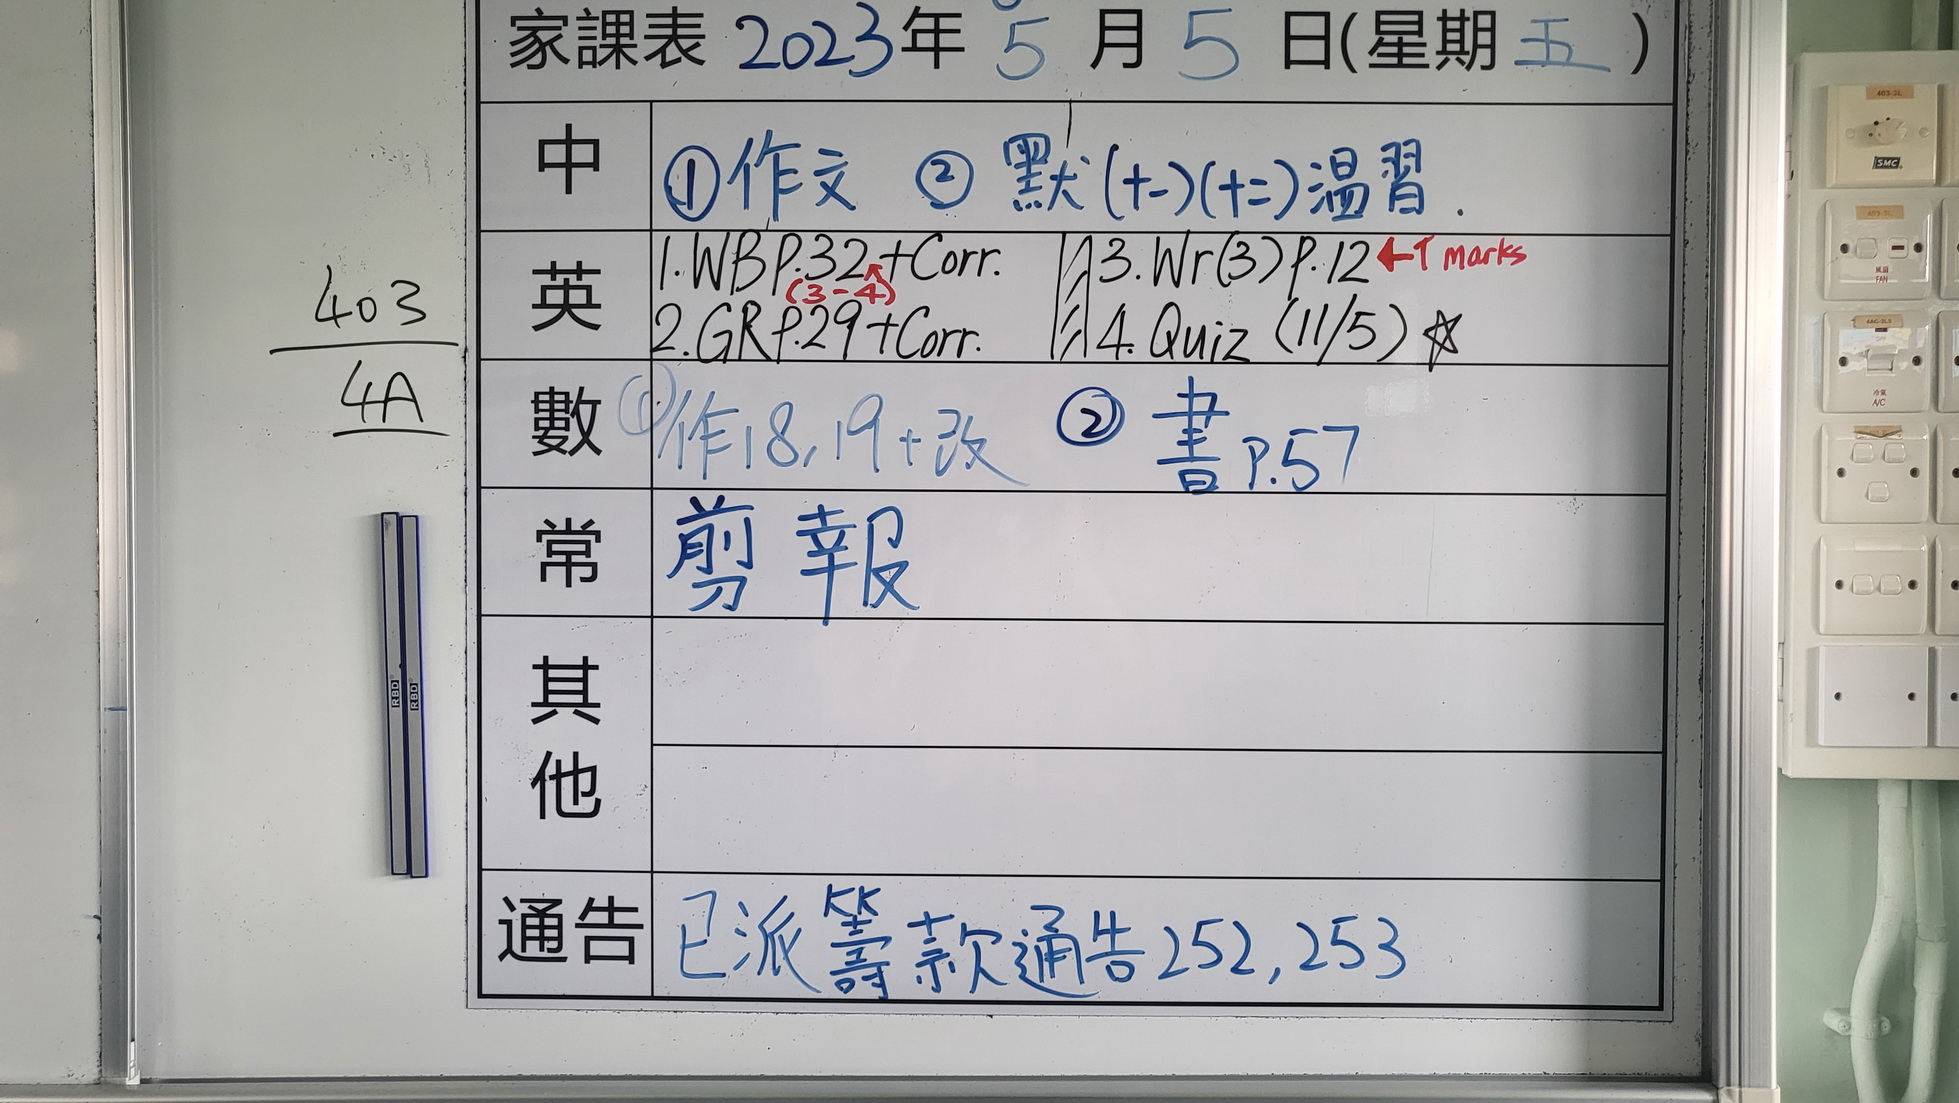 家課表 2023年 5 月 5 日(星期 五 )
中 ①作文 ② 默(十一)(十二)温習.
英 1.WB P.32+Corr. 3.Wr(3) P.12 ←↑ marks
(3-4)
2.GR P.29+Corr. 4. Quiz (11/5) ☆
數 ①作18,19+改 ② 書 P.57
常 剪報
其他
通告 已派籌款通告252,253
403
4A
RBD
RBD
403-3L
SMC
403-3L
風扇
FAN
冷氣
A/C